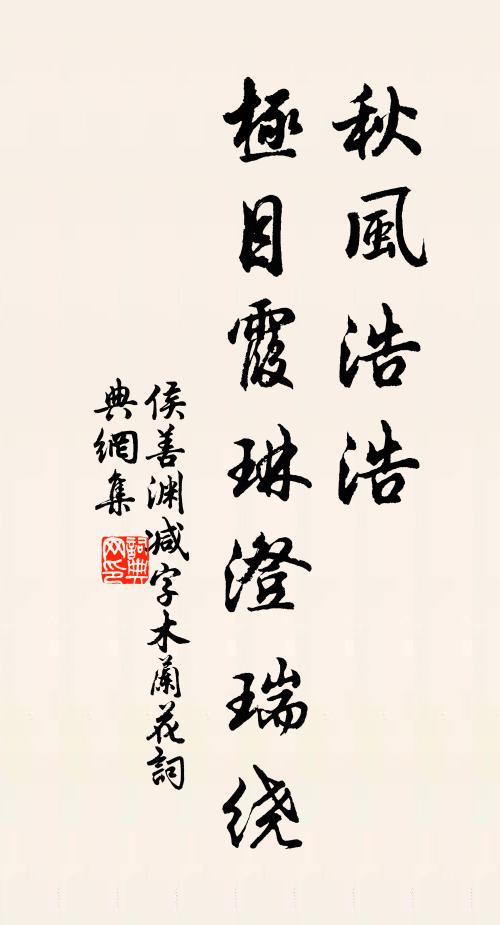 秋風浩浩
極目霞琳澄瑞绕
侯善渊减字木蘭花詞
典網集
詞典网印